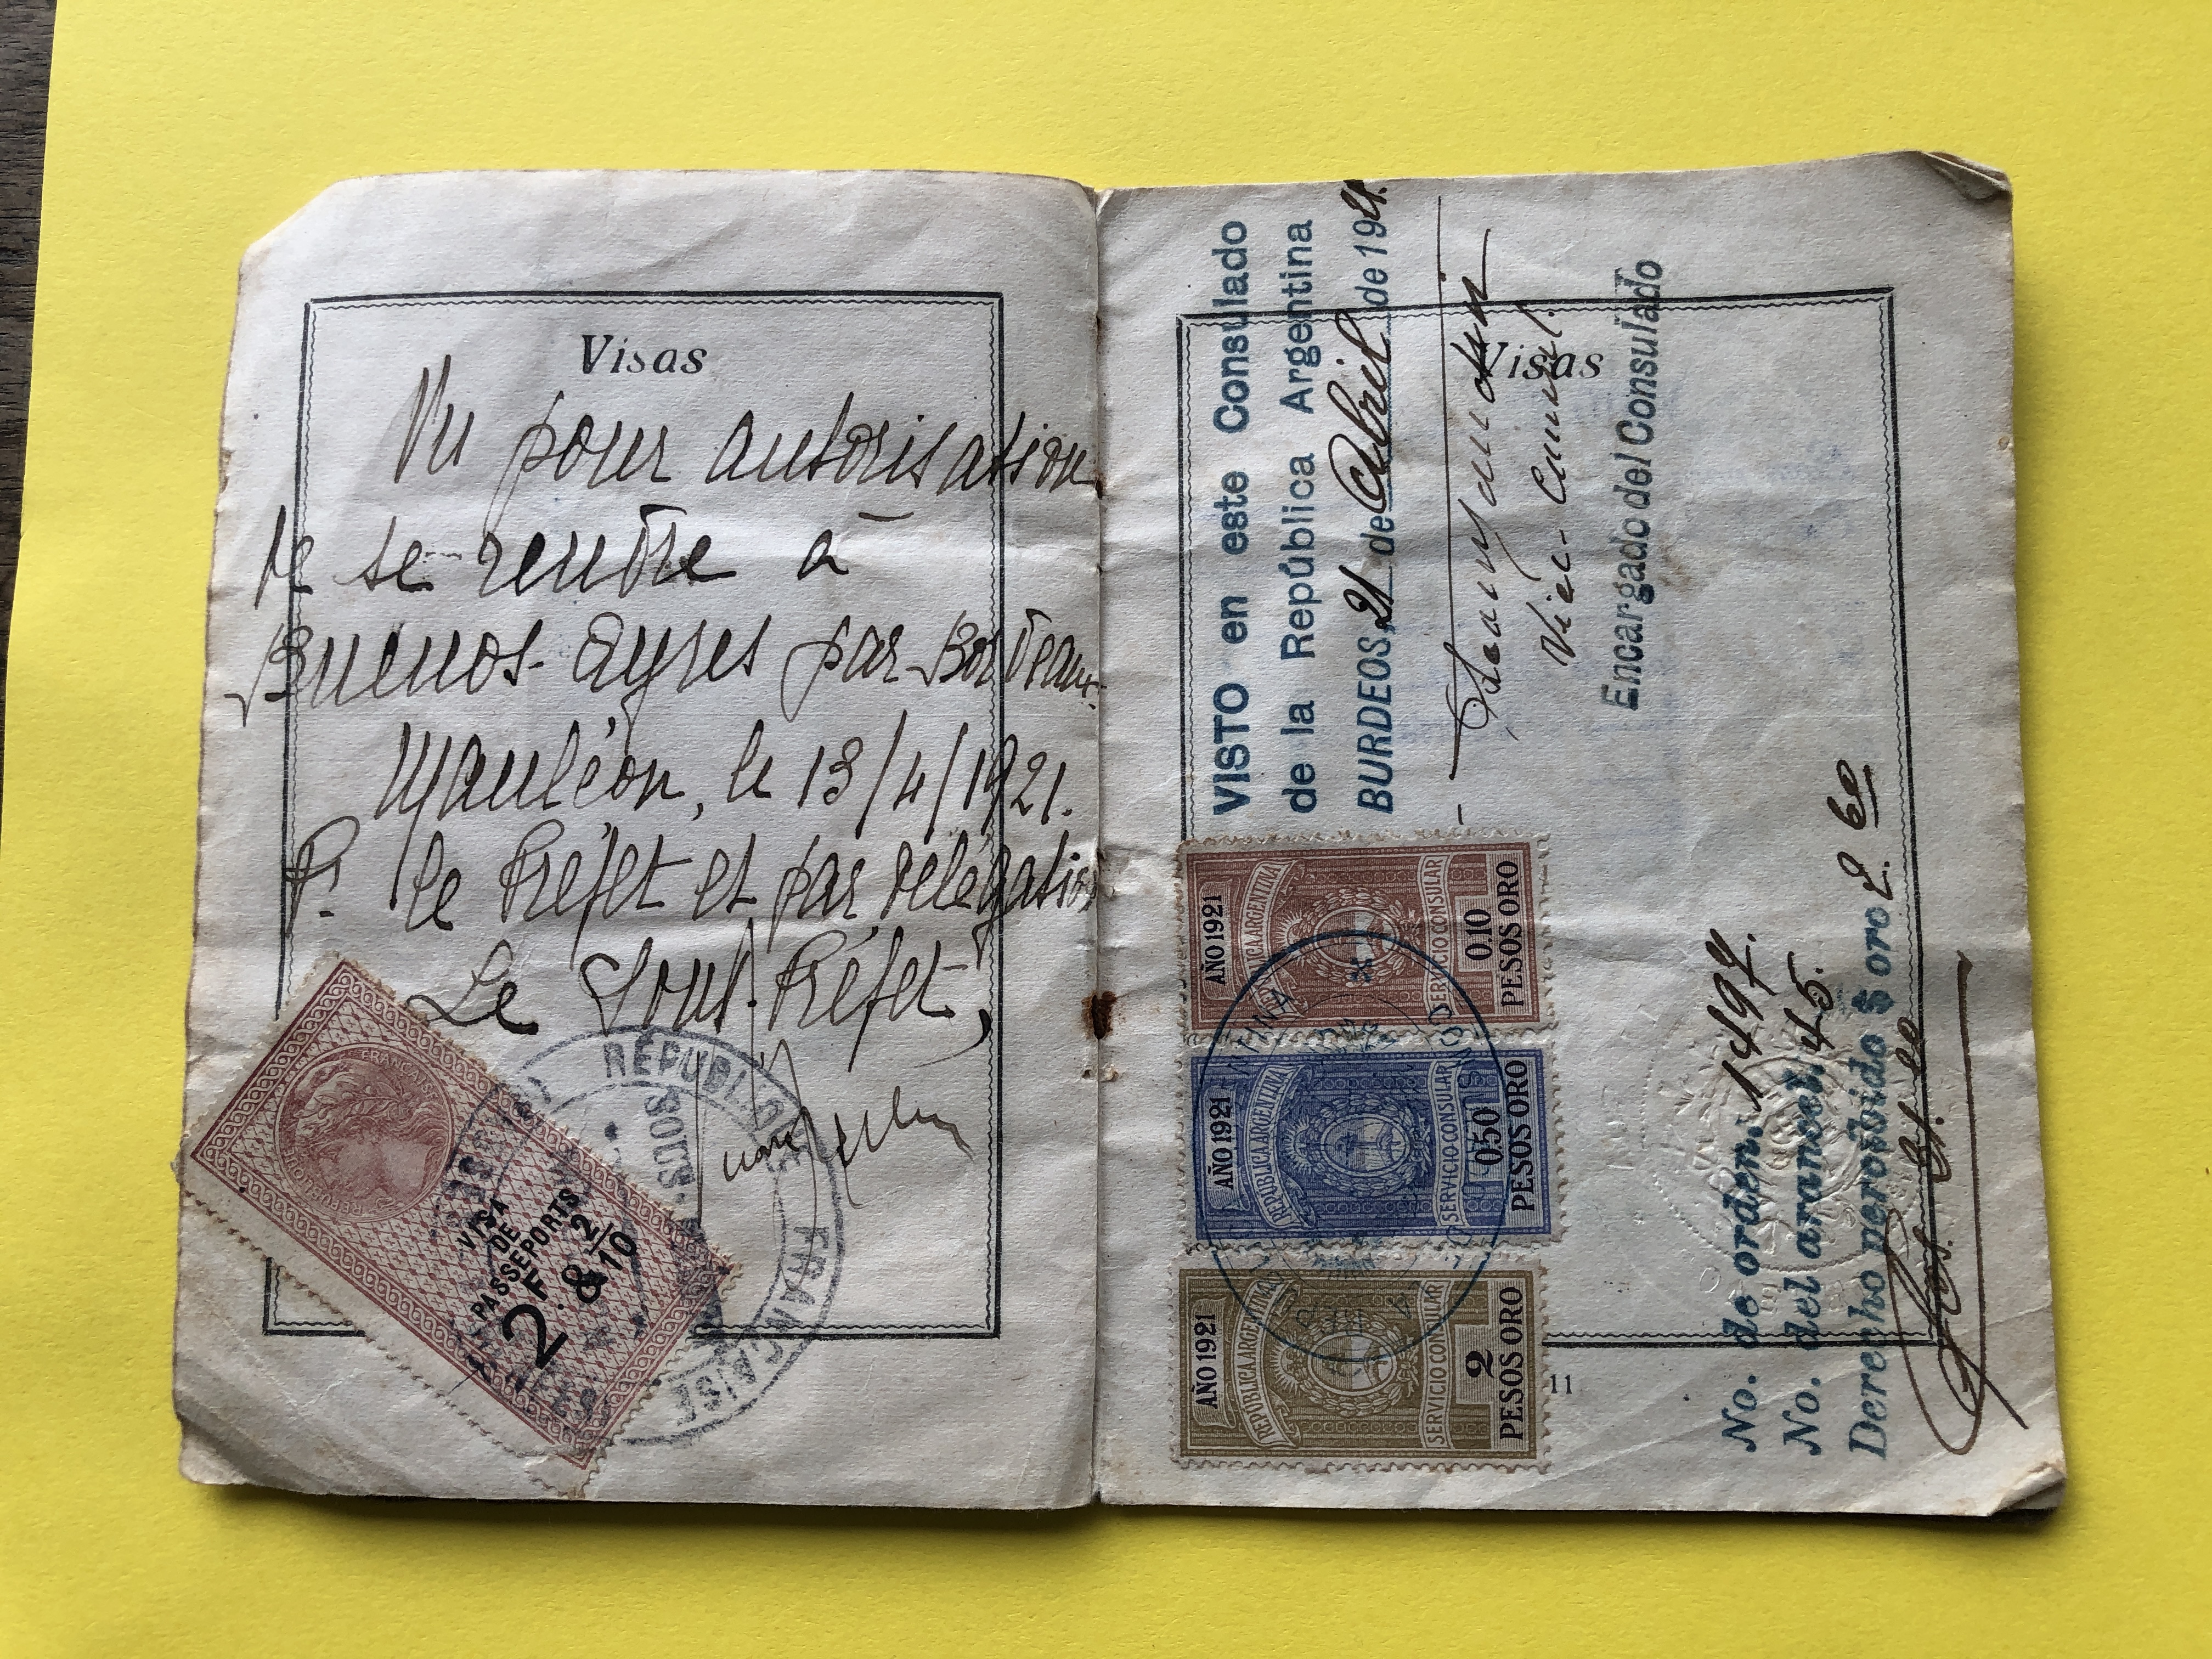 Visas
Vu pour autorisation
de se rendre à
Buenos-Ayres par Bordeaux
Mauléon, le 13/4/1921.
P. le Préfet et par délégation
Le Sous-Préfet,
RÉPUBLIQUE FRANÇAISE
SOUS-
RÉPUBLIQUE FRANÇAISE
VISA
DE
PASSEPORTS
2F. & 2/10
Visas
VISTO en este Consulado
de la República Argentina
BURDEOS, 21 de Abril de 1921.
Vice-Consul.
Encargado del Consulado
AÑO 1921
REPUBLICA ARGENTINA
SERVICIO CONSULAR
0.10
PESOS ORO
AÑO 1921
REPUBLICA ARGENTINA
SERVICIO CONSULAR
0.50
PESOS ORO
AÑO 1921
REPUBLICA ARGENTINA
SERVICIO CONSULAR
2
PESOS ORO
No. de orden. 1497.
No. del arancel. 45.
Derecho percibido $ oro 2.60
11